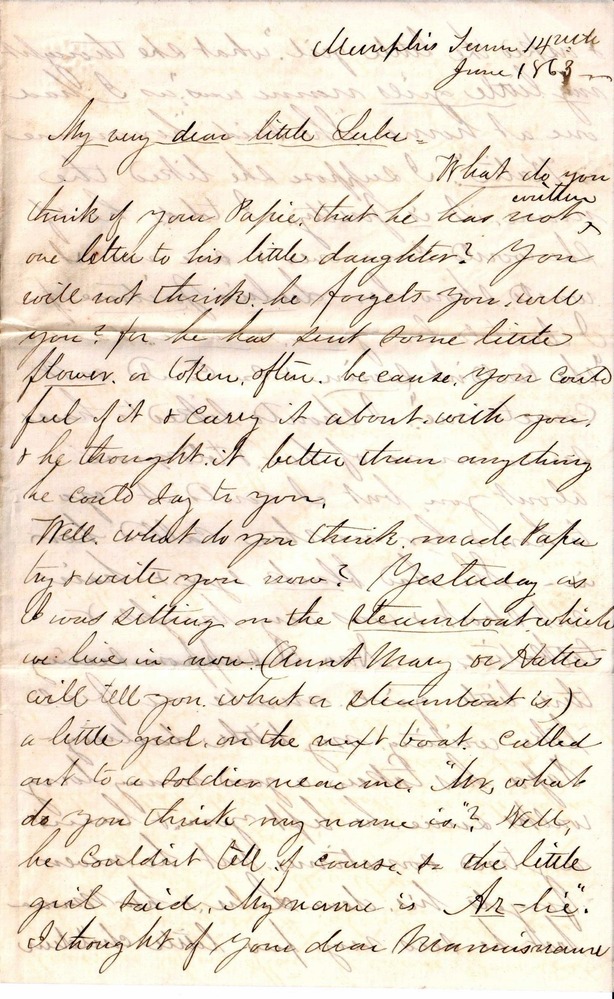 Memphis Tenn 14th
June 1863
My very dear little Lulu
What do you
written
think of your Papie, that he has not ^
one letter to his little daughter? You
will not think he forgets you will
you? for he has sent some little
flower, or token, often, because, you could
feel of it & carry it about with you,
& he thought it better than anything
he could say to you.
Well, what do you think made Papa
try & write you now? Yesterday as
I was sitting on the steamboat which
we live in now (Aunt Mary or Hattie
will tell you what a steamboat is)
a little girl, on the next boat called
out to a soldier near me, "Mr, what
do you think my name is"? Well,
he couldn't tell of course, & the little
girl said, My name is Ar-lie".
I thought of your dear Mamies name